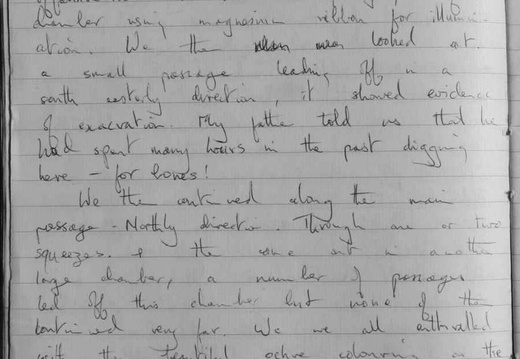 chamber using magnesium ribbon for illumin-
ation. We then looked at
a small passage leading off in a
south easterly direction, it showed evidence
of excavation. My father told us that he
had spent many hours in the past digging
here - for bones!
We then continued along the main
passage - Northly direction. Through one or two
squeezes. & then came out in another
large chamber, a number of passages
led off this chamber but none of them
continued very far. We were all enthralled
with the beautiful ochre colouring on the